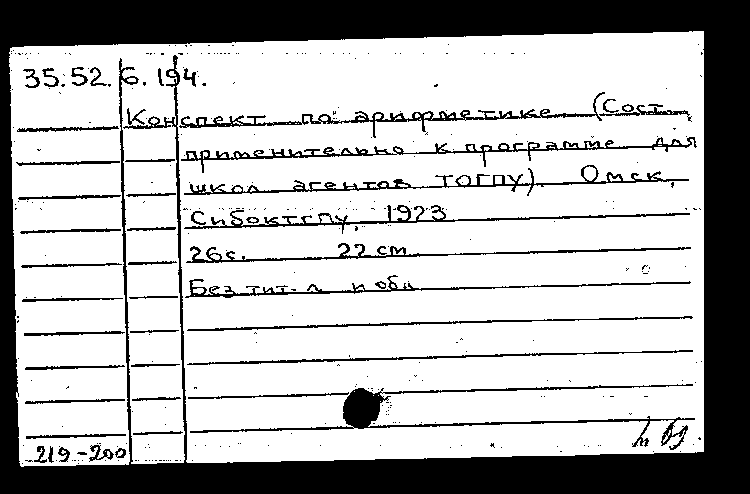 35.52.6.194.
Конспект по арифметике (Сост.
применительно к программе для
школ агентов ТОГПУ). Омск,
Сибоктгпу, 1923
26с. 22 см
Без тит. л и обл
219-200